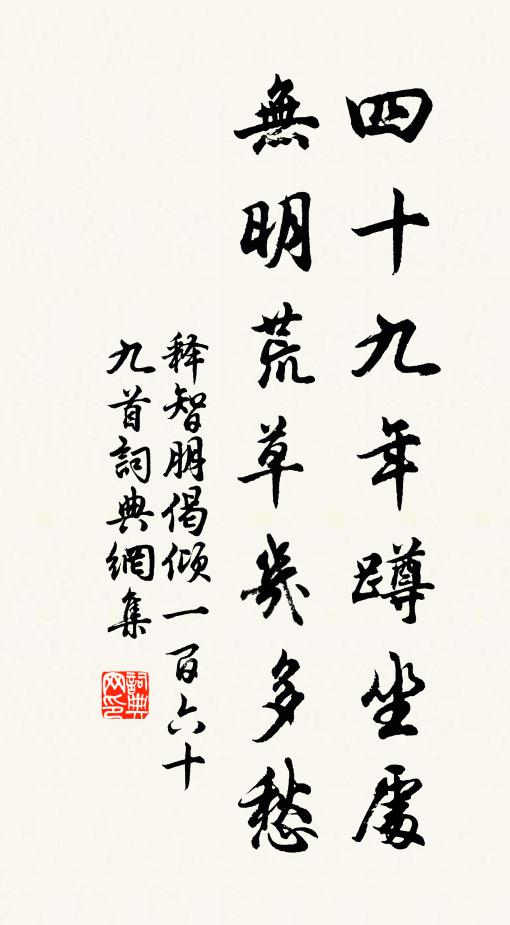 四十九年蹲坐處
無明荒草幾多愁
释智朋偈倾一百六十
九首詞典網集
詞典
网印